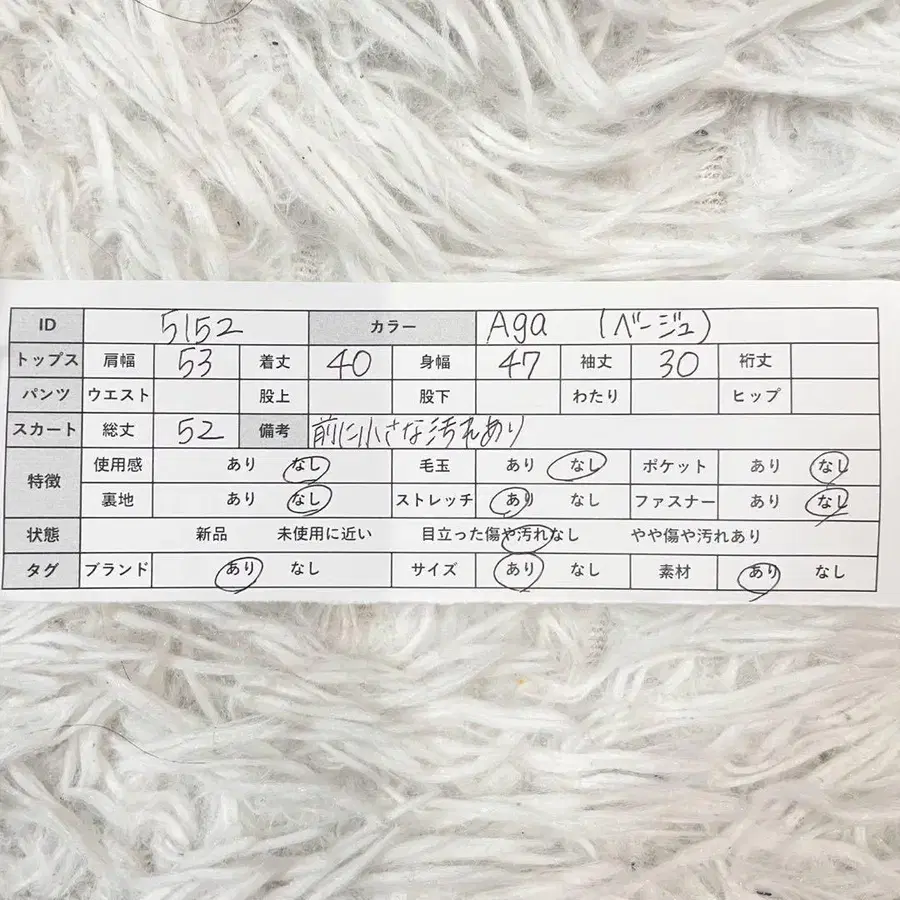 ID 5152 カラー Aga (ベージュ)
トップス 肩幅 53 着丈 40 身幅 47 袖丈 30 裄丈
パンツ ウエスト 股上 股下 わたり ヒップ
スカート 総丈 52 備考 前に小さな汚れあり
特徴 使用感 あり なし 毛玉 あり なし ポケット あり なし
裏地 あり なし ストレッチ あり なし ファスナー あり なし
状態 新品 未使用に近い 目立った傷や汚れなし やや傷や汚れあり
タグ ブランド あり なし サイズ あり なし 素材 あり なし